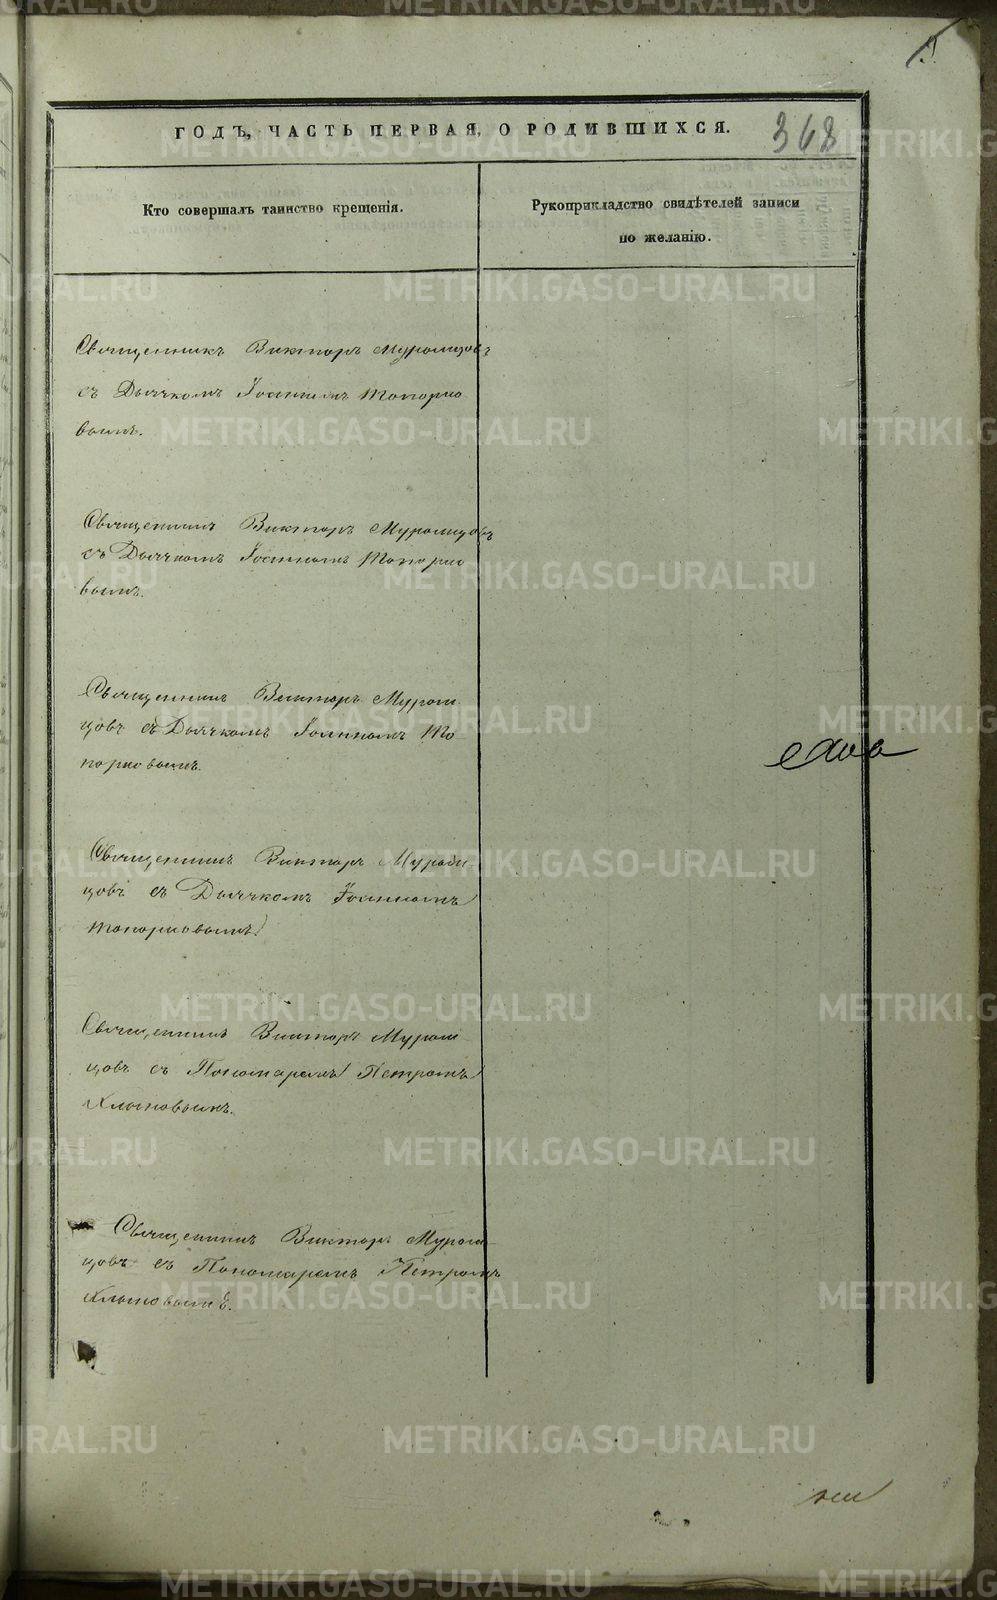 368
ГОДЪ, ЧАСТЬ ПЕРВАЯ, О РОДИВШИХСЯ.
Кто совершалъ таинство крещенія.
Рукоприкладство свидѣтелей записи
по желанію.
Священникъ Викторъ Муромцовъ
съ Дьячкомъ Іоанномъ Топорко
вымъ.
Священникъ Викторъ Муромцовъ
съ Дьячкомъ Іоанномъ Топорко
вымъ.
Священникъ Викторъ Муром
цовъ съ Дьячкомъ Іоанномъ То
порковымъ.
Священникъ Викторъ Муром
цовъ съ Дьячкомъ Іоанномъ
Топорковымъ
Священникъ Викторъ Муром
цовъ съ Пономаремъ Петромъ
Хлыновымъ.
Священникъ Викторъ Муром
цовъ съ Пономаремъ Петромъ
Хлыновымъ.
METRIKI.GASO-URAL.RU